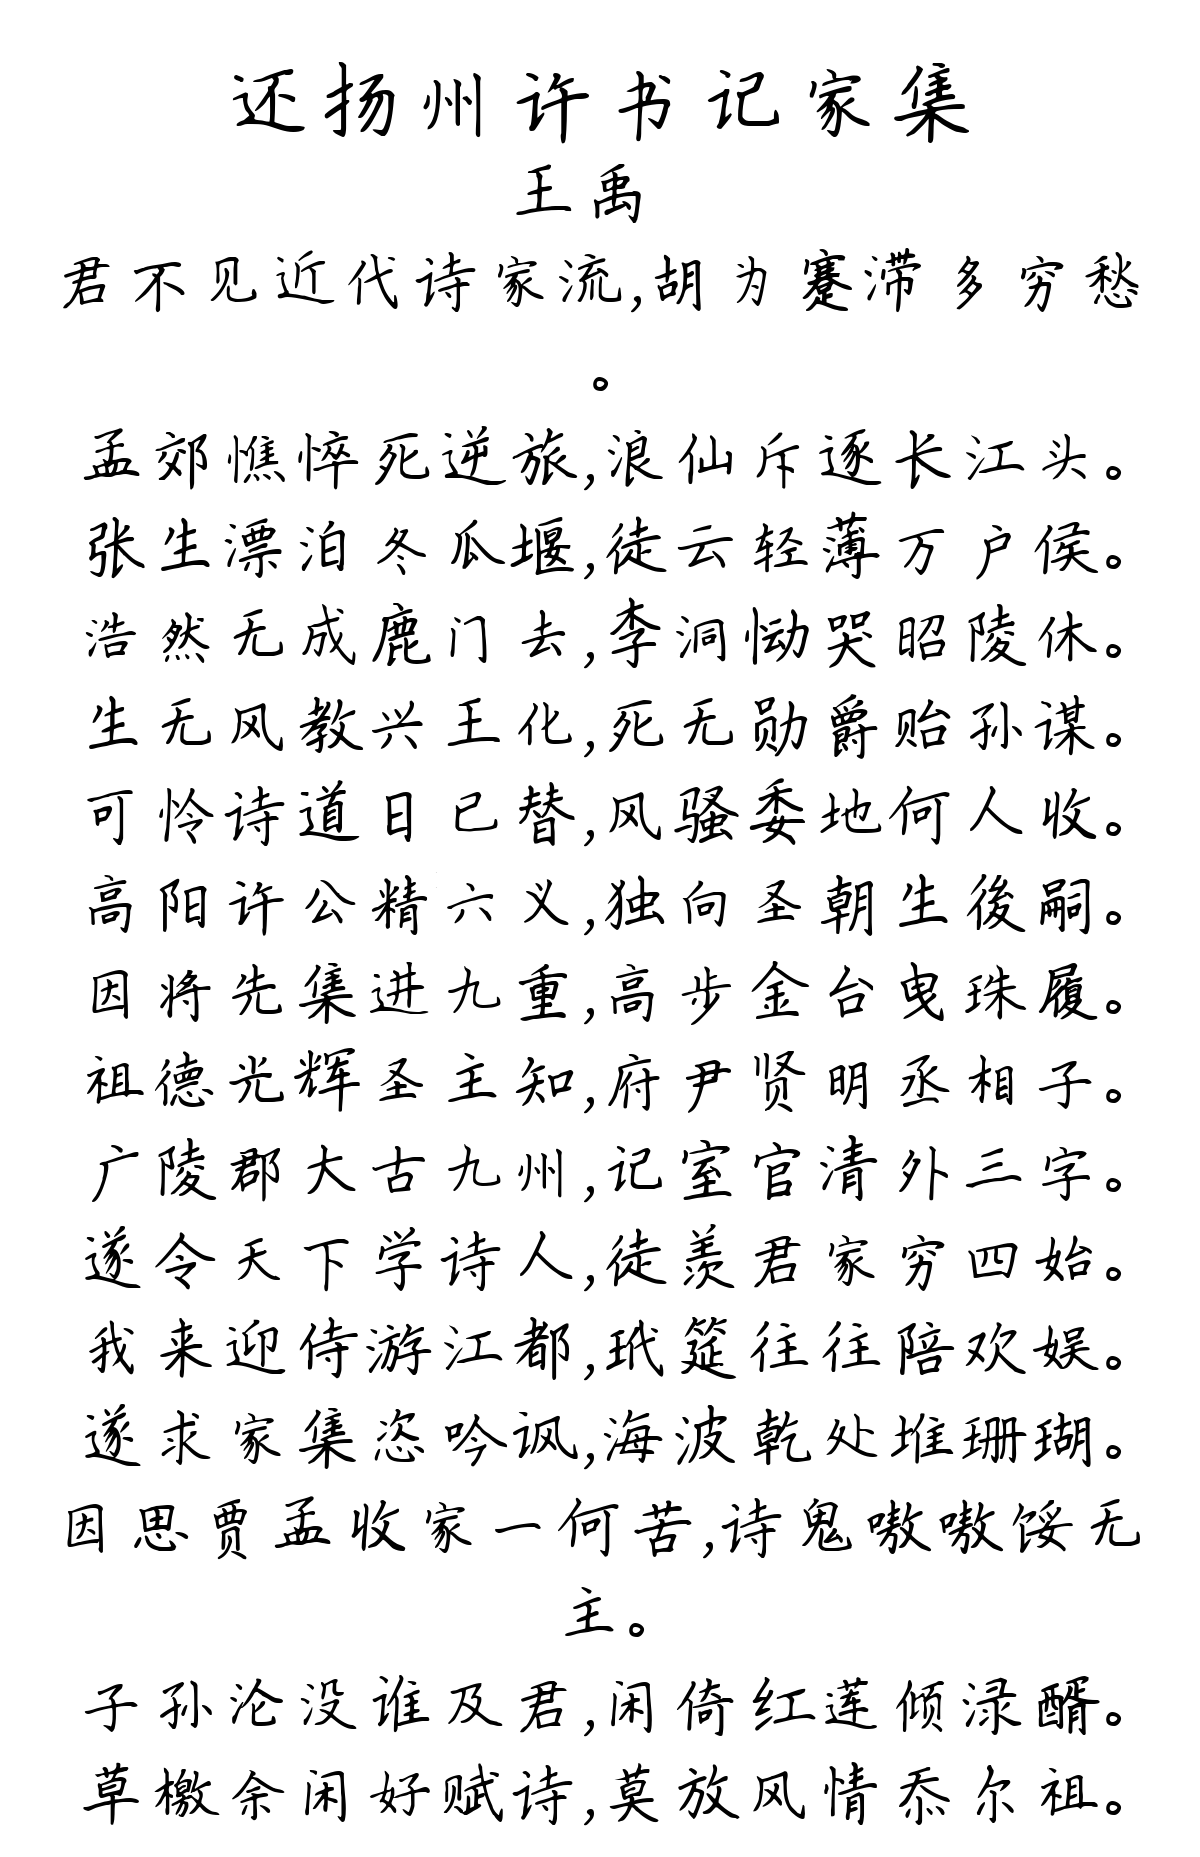 还扬州许书记家集
王禹
君不见近代诗家流,胡为蹇滞多穷愁
。
孟郊憔悴死逆旅,浪仙斥逐长江头。
张生漂泊冬瓜堰,徒云轻薄万户侯。
浩然无成鹿门去,李洞恸哭昭陵休。
生无风教兴王化,死无勋爵贻孙谋。
可怜诗道日已替,风骚委地何人收。
高阳许公精六义,独向圣朝生後嗣。
因将先集进九重,高步金台曳珠履。
祖德光辉圣主知,府尹贤明丞相子。
广陵郡大古九州,记室官清外三字。
遂令天下学诗人,徒羡君家穷四始。
我来迎侍游江都,玳筵往往陪欢娱。
遂求家集恣吟讽,海波乾处堆珊瑚。
因思贾孟收家一何苦,诗鬼嗷嗷馁无
主。
子孙沦没谁及君,闲倚红莲倾渌醑。
草檄余闲好赋诗,莫放风情忝尔祖。